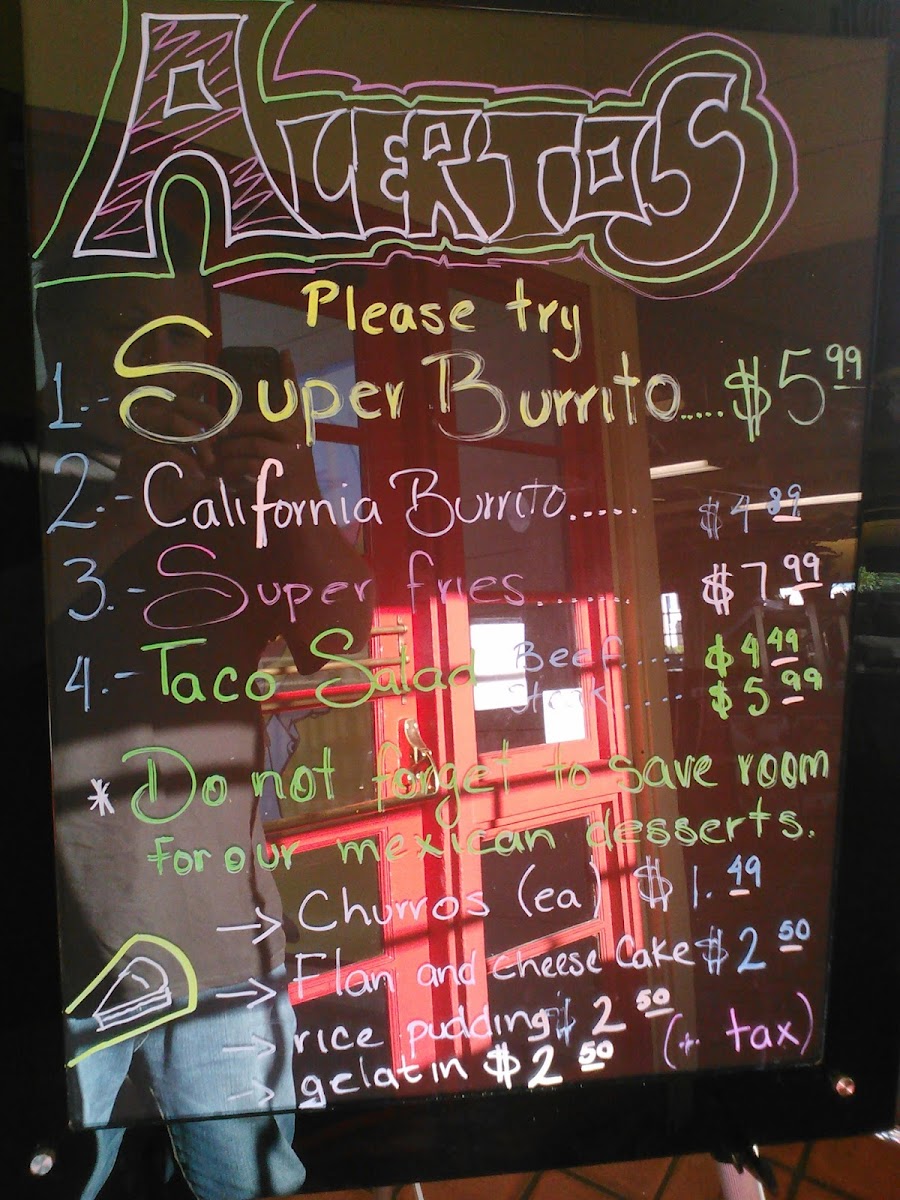 ALERTOS
Please try
1.- Super Burrito..... $5 99
2.- California Burrito..... $4 89
3.- Super fries........ $7 99
4.- Taco Salad Beef..... $4 49
Steak..... $5 99
* Do not forget to save room
for our mexican desserts.
→ Churros (ea) $1. 49
→ Flan and cheese Cake $2 50
→ rice pudding $2 50
→ gelatin $2 50 (+ tax)